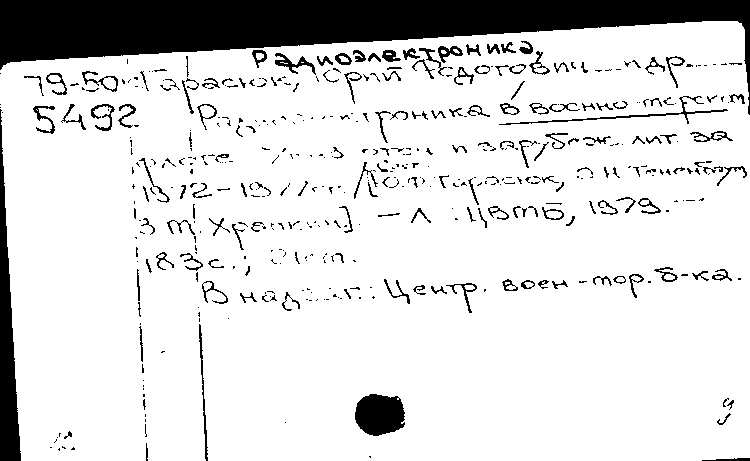 Радиоэлектроника,
79-50 Гарасюк, Юрий Федотович и др.
5492 Радиоэлектроника в военно-морском
флоте отеч и зарубеж. лит. за
1972-1977гг. / [Сост. Ю.Ф. Гарасюк, Э.Н. Тененбаум,
З.М. Храпкин]. — Л.: ЦВМБ, 1979. —
183 с.; 21 см.
В надзаг.: Центр. воен-мор. б-ка.